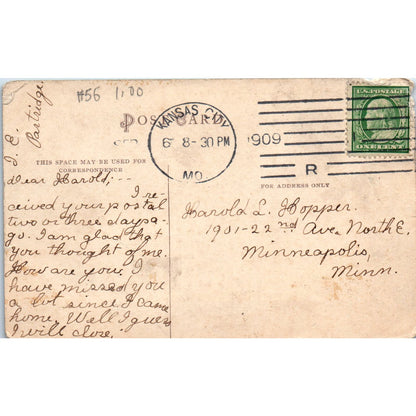 #56 1.00
J. E. Partridge
POST CARD
KANSAS CITY
SEP
6 8-30 PM
1909
MO.
R
U.S. POSTAGE
ONE CENT
THIS SPACE MAY BE USED FOR
CORRESPONDENCE
FOR ADDRESS ONLY
Dear Harold:--
I re-
ceived your postal
two or three days a-
go. I am glad that
you thought of me.
How are you. I
have missed you
a lot since I came
home. Well I guess
I will close.
Harold L. Hopper.
1901-22nd Ave. North E.
Minneapolis,
Minn.